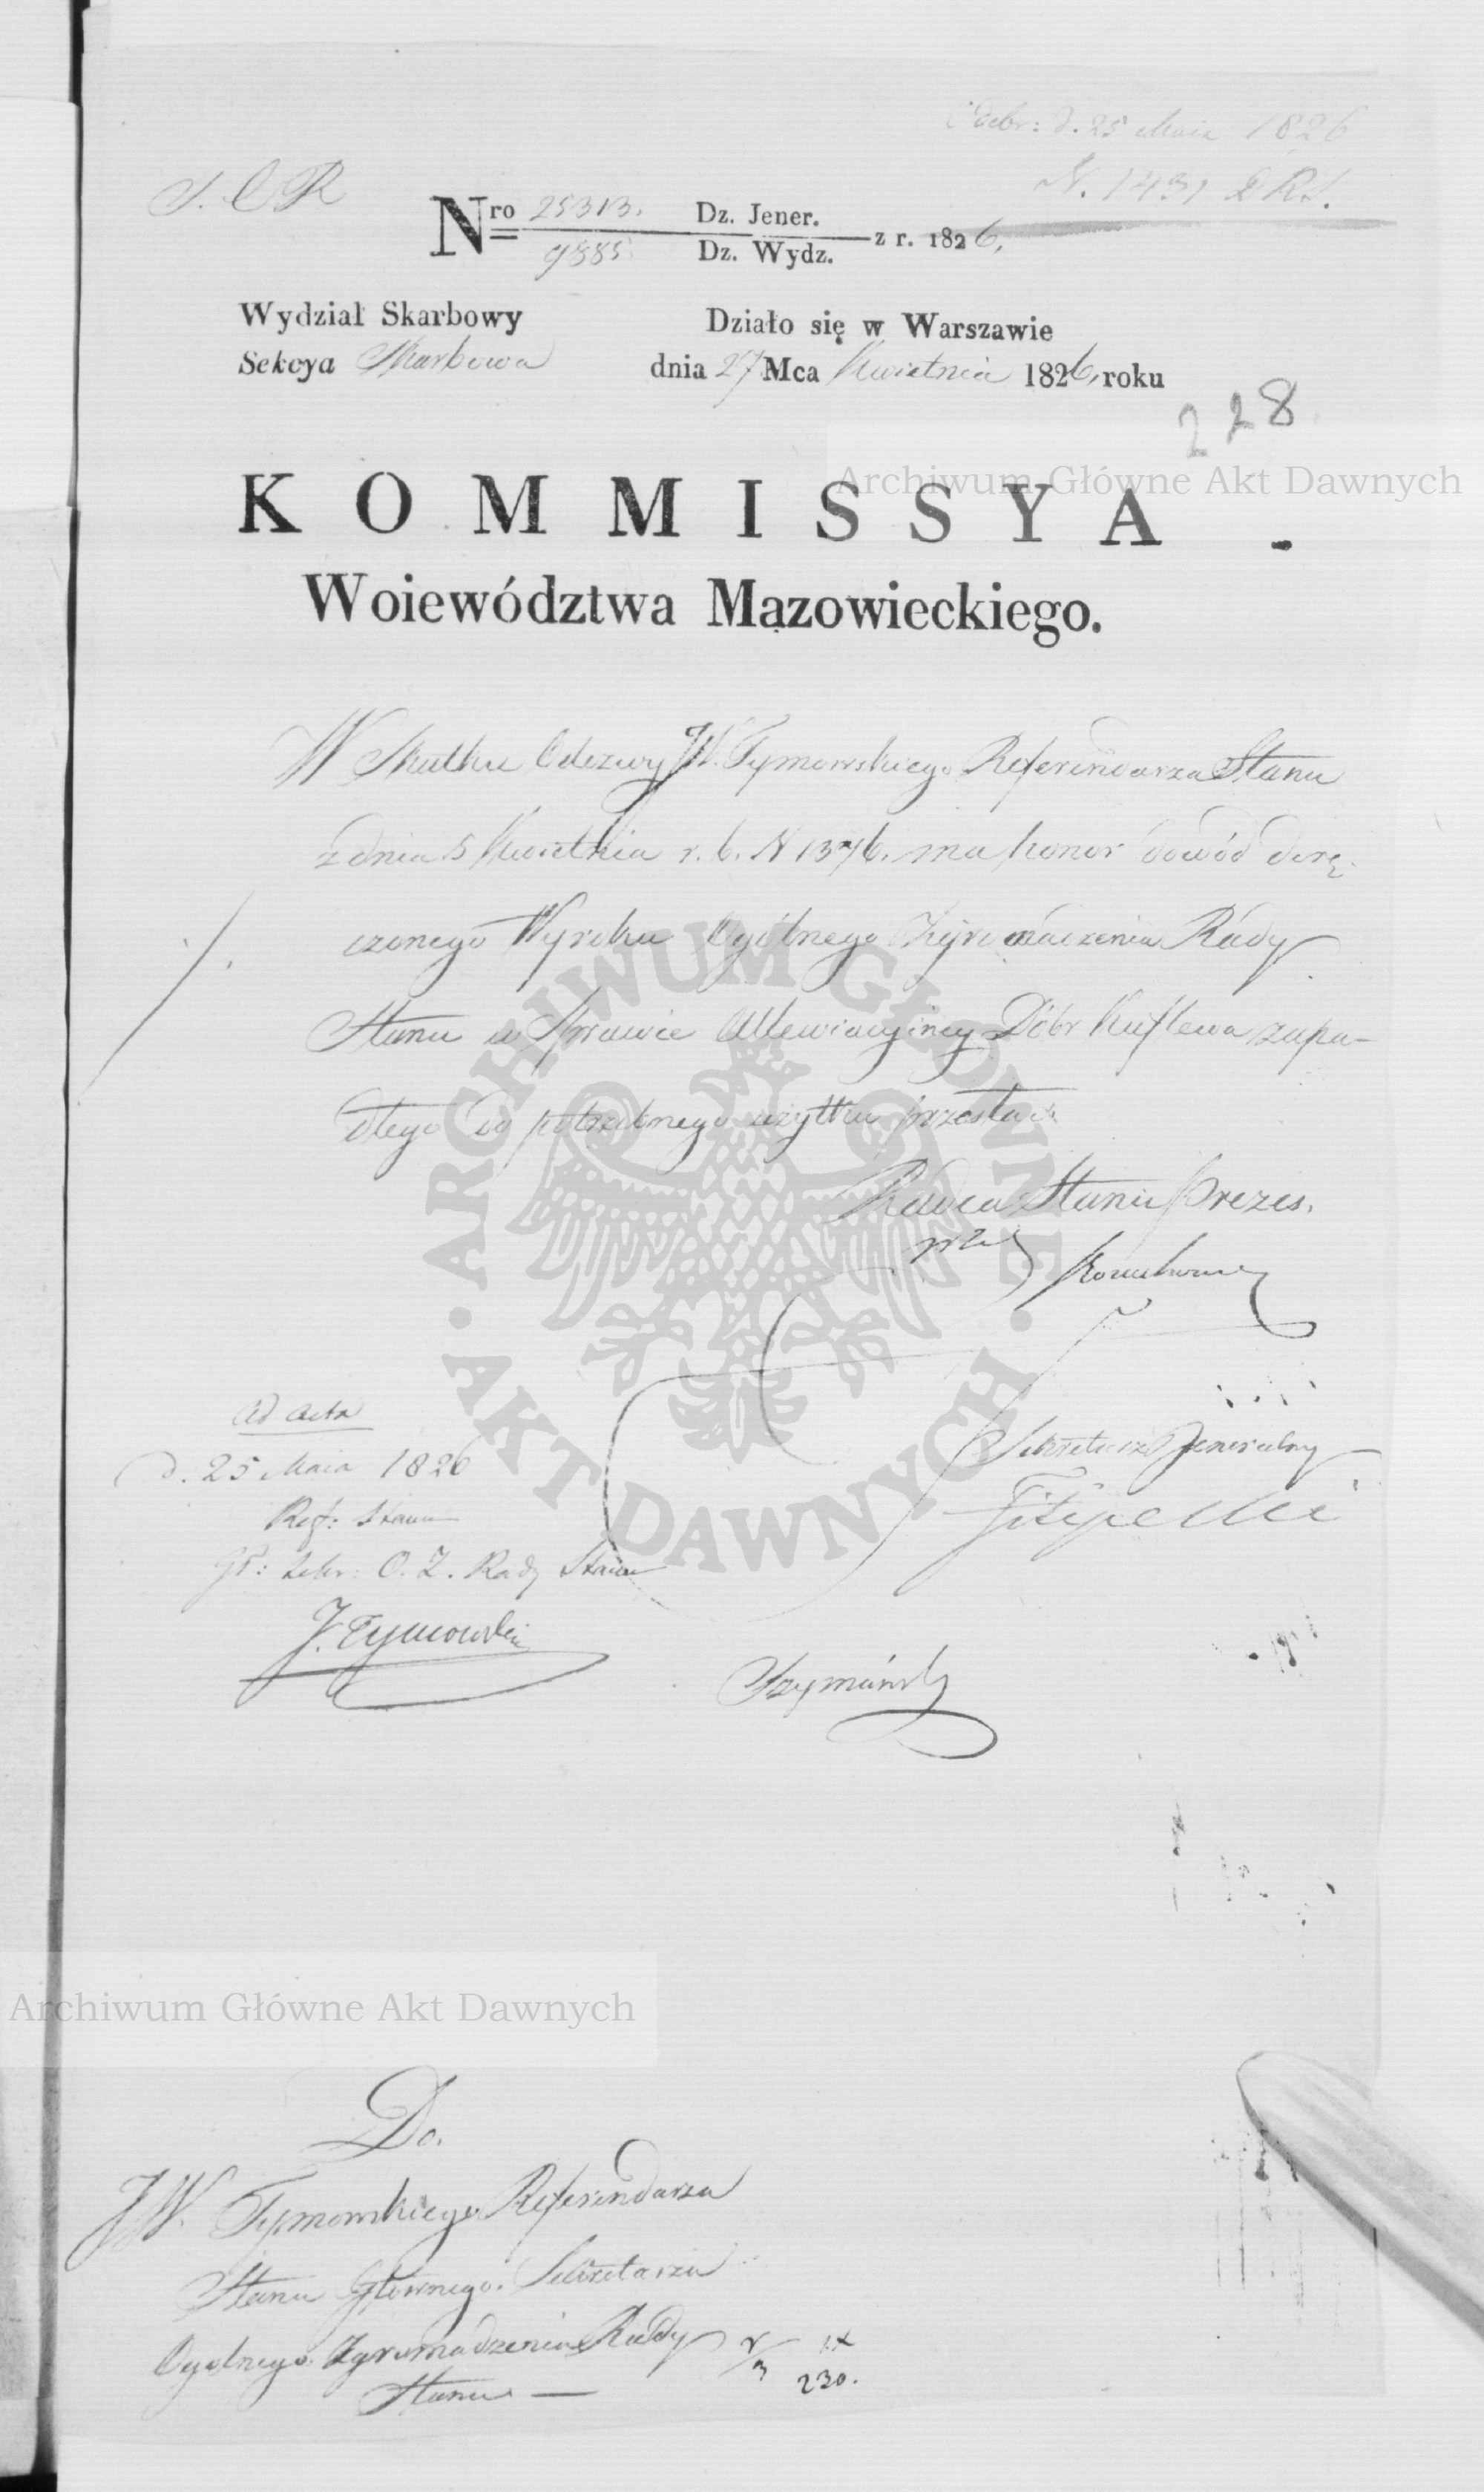 Odebr: d. 25 Maia 1826
N. 1431 D R S.
Nro 25313. Dz. Jener.
9885. Dz. Wydz. z r. 1826,
Wydział Skarbowy
Działo się w Warszawie
Sekcya Skarbowa
dnia 27 Mca Kwietnia 1826, roku
228
Archiwum Główne Akt Dawnych
KOMMISSYA
Woiewództwa Mazowieckiego.
W Skutku Odezwy JW. Tymowskiego Referendarza Stanu
z dnia 5 Kwietnia r. b. N 1376. ma honor dowód dorę-
czonego Wyroku Ogólnego Zgromadzenia Rady
Stanu w Sprawie Allewiacyiney Dóbr Kuflewa zapa-
dłego do potrzebnego użytku przesłać
ARCHIWUM GŁÓWNE AKT DAWNYCH
Radca Stanu Prezes.
Ad acta
d. 25 Maia 1826
Ref: Stanu
Sekretarz Jeneralny
Filipecki
O. Z. Rady Stanu
J. Tymowski
Szymański
Archiwum Główne Akt Dawnych
Do.
JW. Tymowskiego Referendarza
Stanu Głównego. Sekretarza
Ogolnego Zgromadzenia Rady
Stanu —
230.